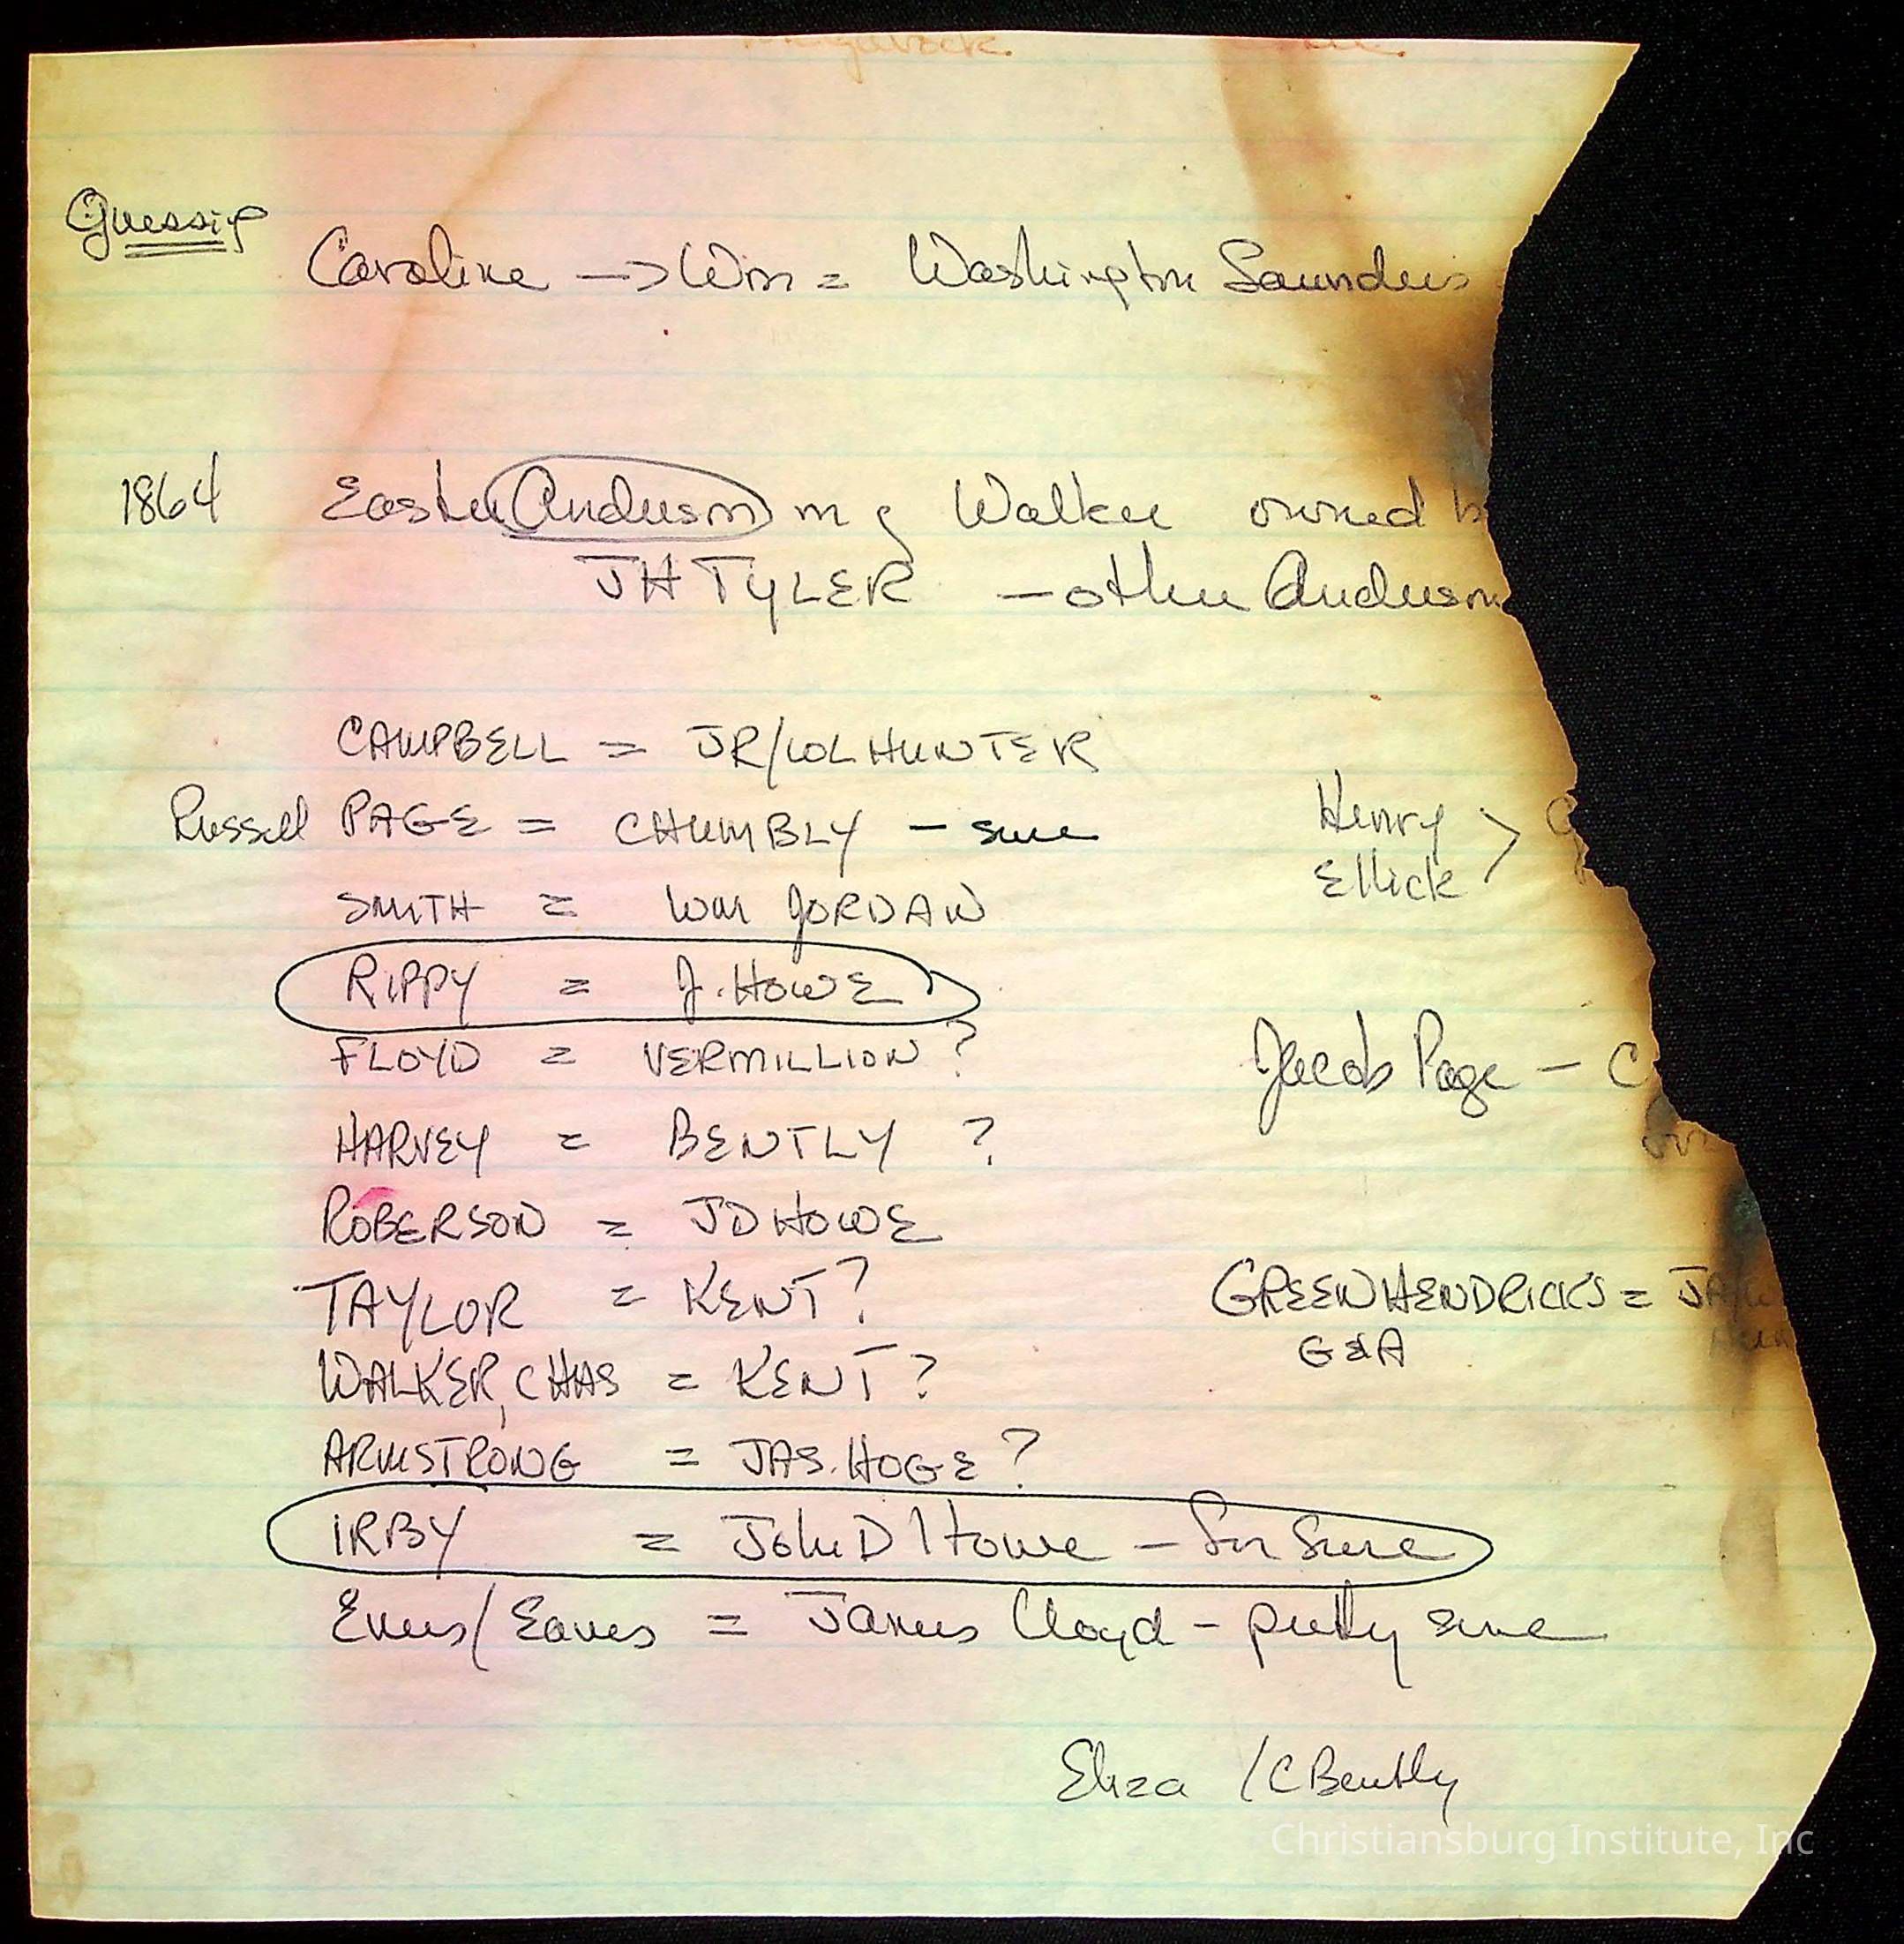 Guessip
Caroline -> Wm = Washington Saunders
1864 Easter Anderson m g Walker owned b
JH TYLER - other Anderson
CAMPBELL = JR/WL HUNTER
Russell PAGE = CHUMBLY - sure
Henry > G
Ellick
SMITH = Wm JORDAN
RIPPY = J. HOWE
FLOYD = VERMILLION ?
Jacob Page - C
HARVEY = BENTLY ?
ROBERSON = JD HOWE
TAYLOR = KENT?
GREEN HENDRICKS = JA/W
G&A
WALKER, CHAS = KENT ?
ARMSTRONG = JAS. HOGE ?
IRBY = John D Howe - for sure
Eves/Eaves = James Cloyd - pretty sure
Eliza /C Bently
Christiansburg Institute, Inc